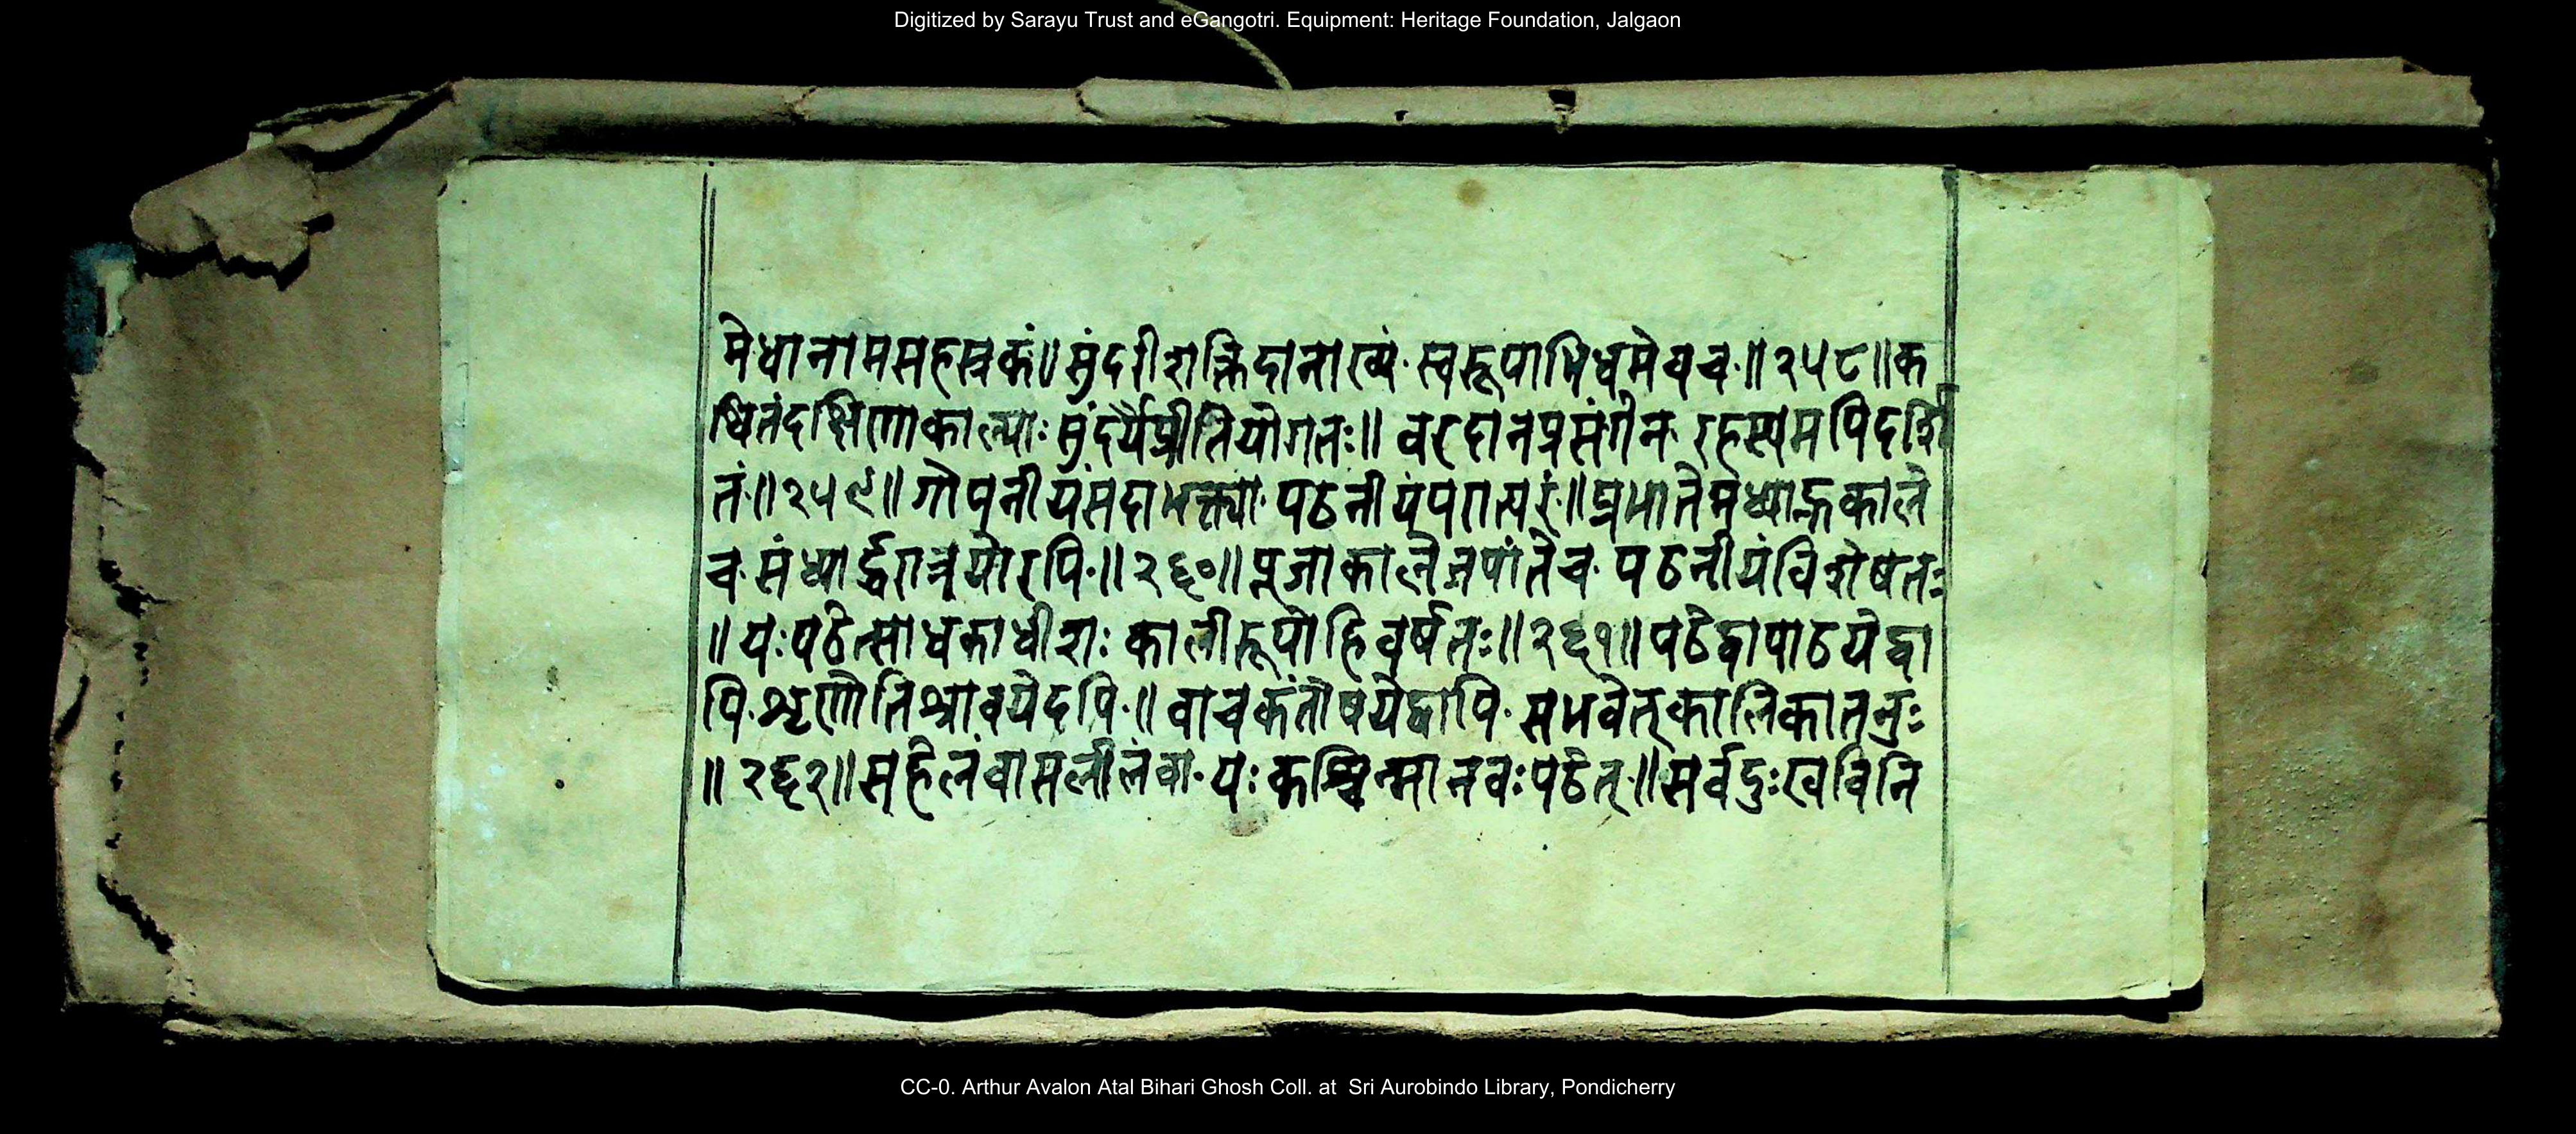 Digitized by Sarayu Trust and eGangotri. Equipment: Heritage Foundation, Jalgaon
मेधानामसहस्रकं॥सुंदरीशक्तिदानाख्यं स्वरूपाभिधमेवच॥२५८॥क
थितंदक्षिणाकाल्याः सुंदर्यैप्रीतियोगतः॥ वरदानप्रसंगेन रहस्यमपिदर्शि
तं॥२५९॥गोपनीयंसदाभक्त्या पठनीयंपरात्परं॥प्रभातेमध्याह्नकाले
च संध्यार्द्धरात्रयोरपि॥२६०॥पूजाकालेजपांतेच पठनीयंविशेषतः
॥यःपठेत्साधकाधीशः कालीरूपोहिवर्षतः॥२६१॥पठेद्वापाठयेद्वा
पि शृणोतिश्रावयेदपि॥वाचकंतोषयेद्वापि सभवेत्कालिकातनुः
॥२६२॥सहेलंवासलीलंवा यः कश्चिन्मानवःपठेत्॥सर्वदुःखविनि
CC-0. Arthur Avalon Atal Bihari Ghosh Coll. at Sri Aurobindo Library, Pondicherry